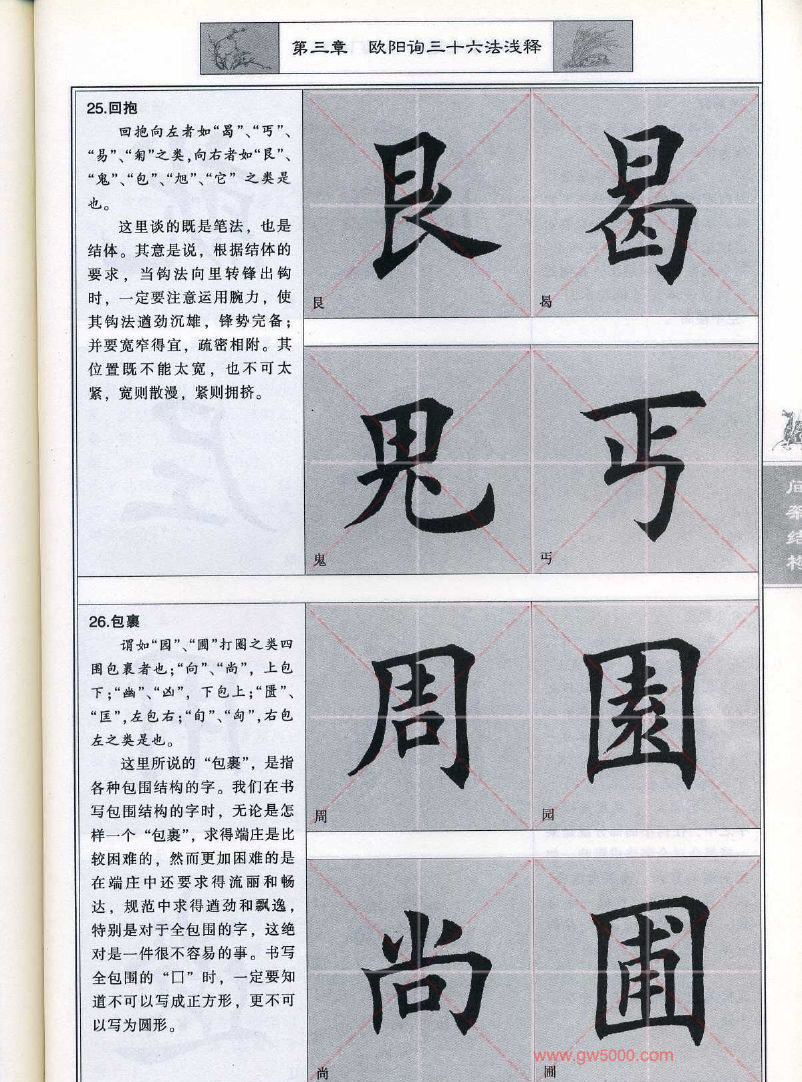 第三章 欧阳询三十六法浅释
25.回抱
回抱向左者如“曷”、“丐”、
“易”、“匊”之类,向右者如“艮”、
“鬼”、“包”、“旭”、“它”之类是
也。
这里谈的既是笔法，也是
结体。其意是说，根据结体的
要求，当钩法向里转锋出钩
时，一定要注意运用腕力，使
其钩法遒劲沉雄，锋势完备；
并要宽窄得宜，疏密相附。其
位置既不能太宽，也不可太
紧，宽则散漫，紧则拥挤。
艮 曷
艮 曷
鬼 丐
鬼 丐
间架结构
26.包裹
谓如“园”、“圃”打圈之类四
围包裹者也;“向”、“尚”，上包
下;“幽”、“凶”，下包上;“匮”、
“匡”,左包右;“旬”、“匈”,右包
左之类是也。
这里所说的“包裹”，是指
各种包围结构的字。我们在书
写包围结构的字时，无论是怎
样一个“包裹”，求得端庄是比
较困难的，然而更加困难的是
在端庄中还要求得流丽和畅
达，规范中求得遒劲和飘逸，
特别是对于全包围的字，这绝
对是一件很不容易的事。书写
全包围的“囗”时，一定要知
道不可以写成正方形，更不可
以写为圆形。
周 園
周 园
尚 圃
尚 圃
www.gw5000.com